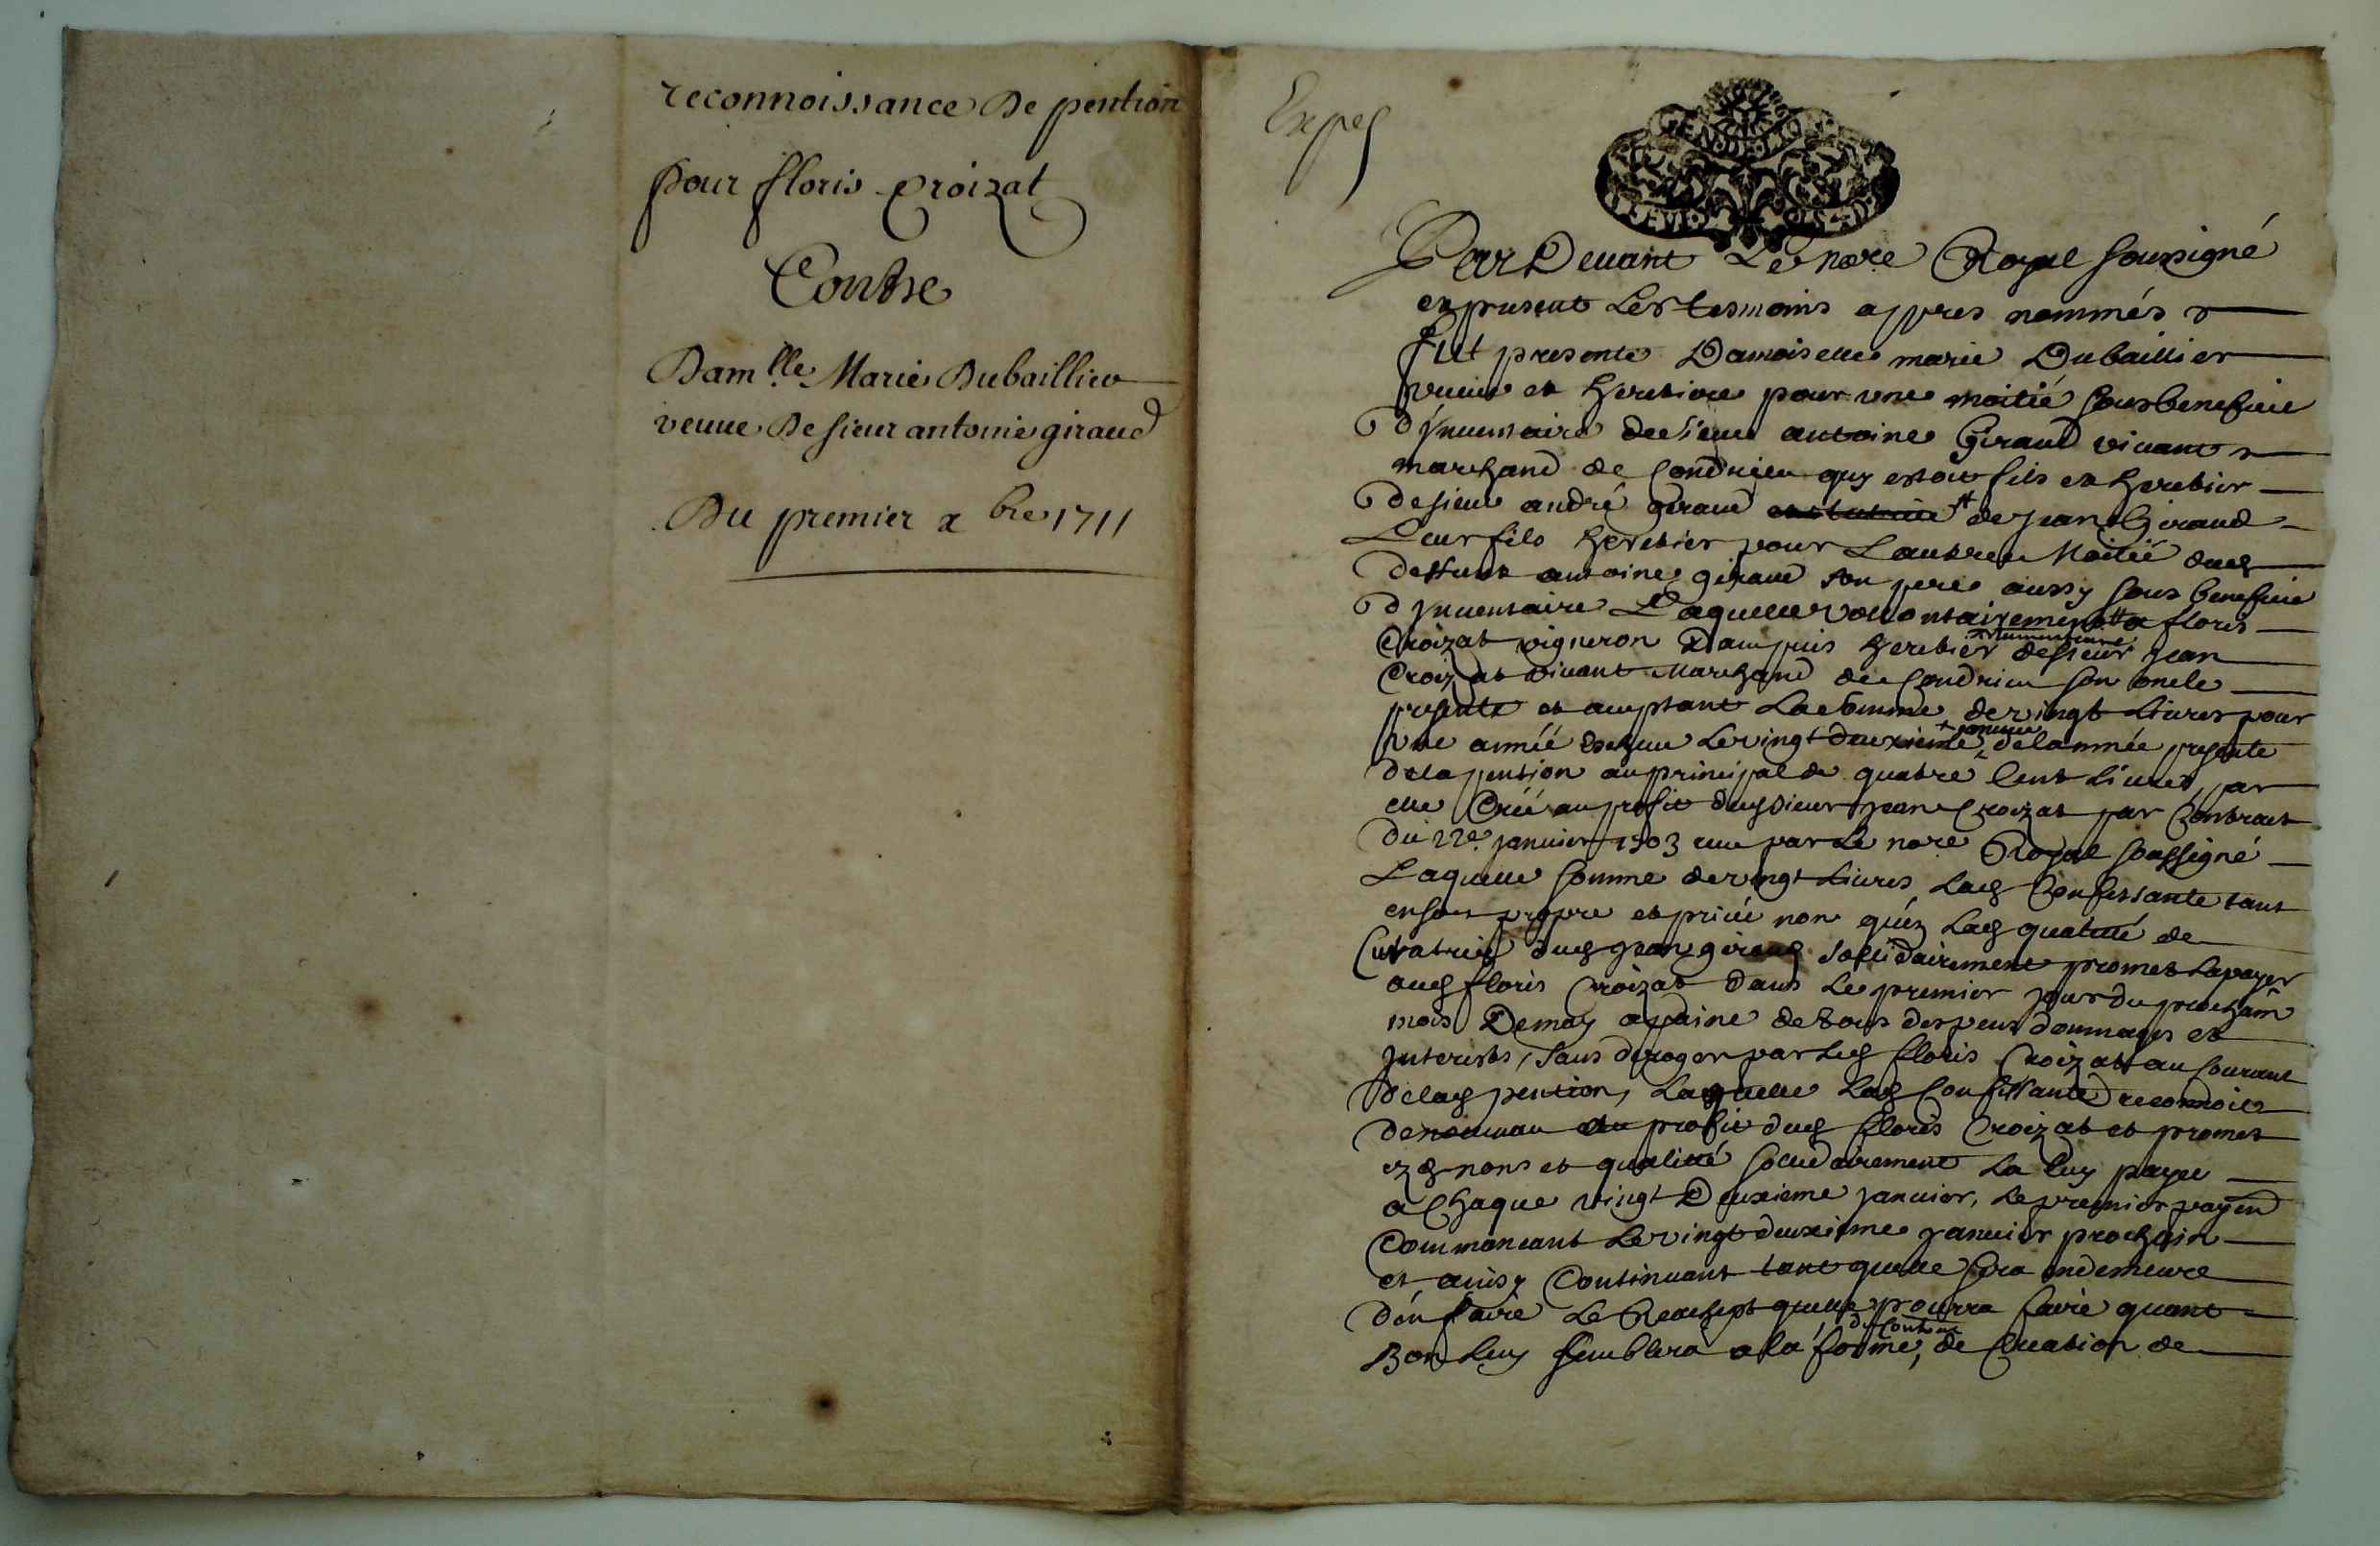 reconnoissance De pention
pour floris Croizat
Contre
Dam.lle Marie Dubaillier
veuue De sieur antoine giraud
Du premier xbre 1711
Expe
Par Deuant Le nore Royal soussigné
en present Les tesmoins appres nommés
fut presente Damoiselle marie Dubaillier
veuue et heretiere pour une moitié sous benefice
d'ynuentaire de sieur antoine Giraud viuant
marchand de Condrieu quy estoit fils et heretier
de sieur andré giraud de jean Giraud
Leur fils heretier pour Lautre Moitié dud
deffunt antoine giraud son pere aussy sous benefice
d'ynuentaire Laquelle vollontairement a floris
Croizat vigneron Dampuis heretier de sieur jean
Croizat viuant Marchand de Condrieu son oncle
presente et aceptant La somme de vingt Liures pour
une année escheue Le vingt deuxieme januier de lannée presente
de la pention au principal de quatre Cent Liures par
elle Créé au profit dud sieur jean Croizat par Contract
du 22e januier 1703 receu par Le nore Royal soussigné
Laquelle somme de vingt Liures Lad Confessante tant
en son propre et priué nom qu'en Lad qualitté de
Curatrice dud jean giraud sollidairement promet La payer
aud floris Croizat dans Le premier jour du prochain
mois De may a paine de tous despens dommages et
Jnterests, sans deroger par Led floris Croizat au Courant
de lad pention, Laquelle Lad Confessante reconnoit
de nouueau au profit dud floris Croizat et promet
ezd noms et qualitté sollidairement La Luy payer
a Chaque vingt Deuxieme januier, Le premier payem
Commancant Le vingt deuxieme januier prochain
et ainsy Continuant tant quelle sera en demeure
d'en faire Le Reachept quelle pourra faire quant
Bon Luy semblera a la forme, du Contract de Creation de